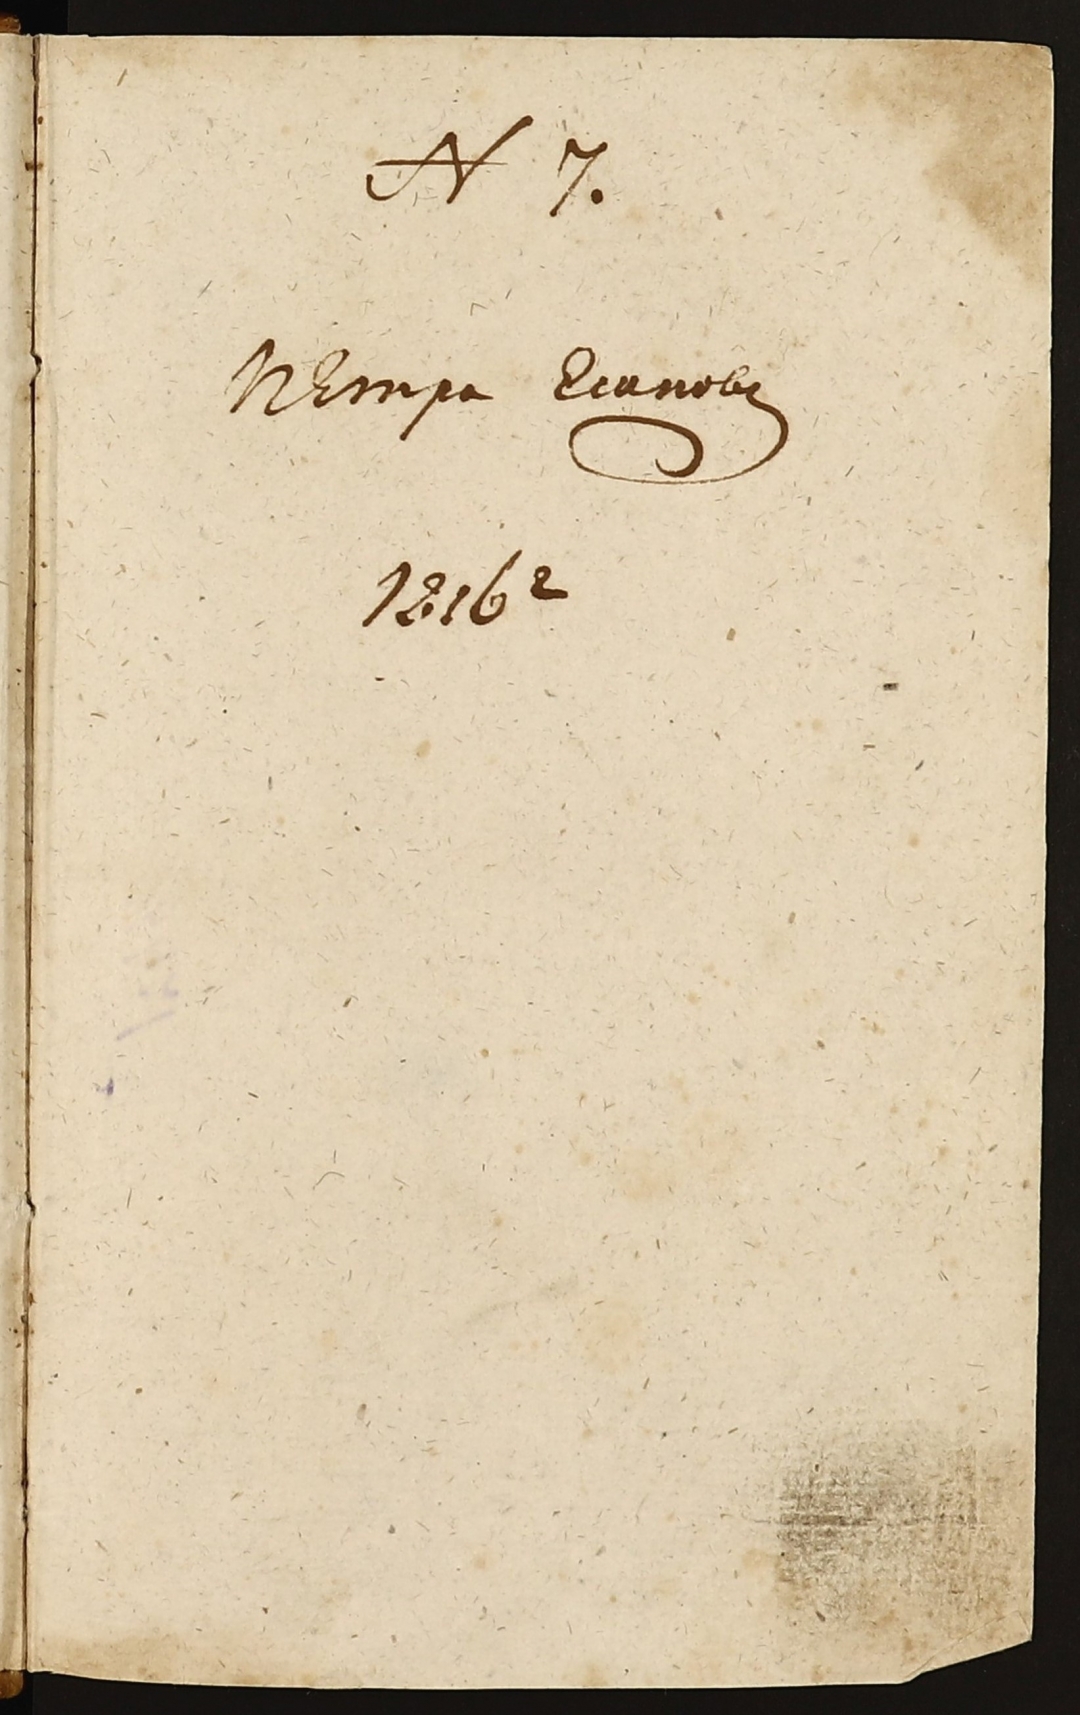 N 7.
Петра Есипова
1816г